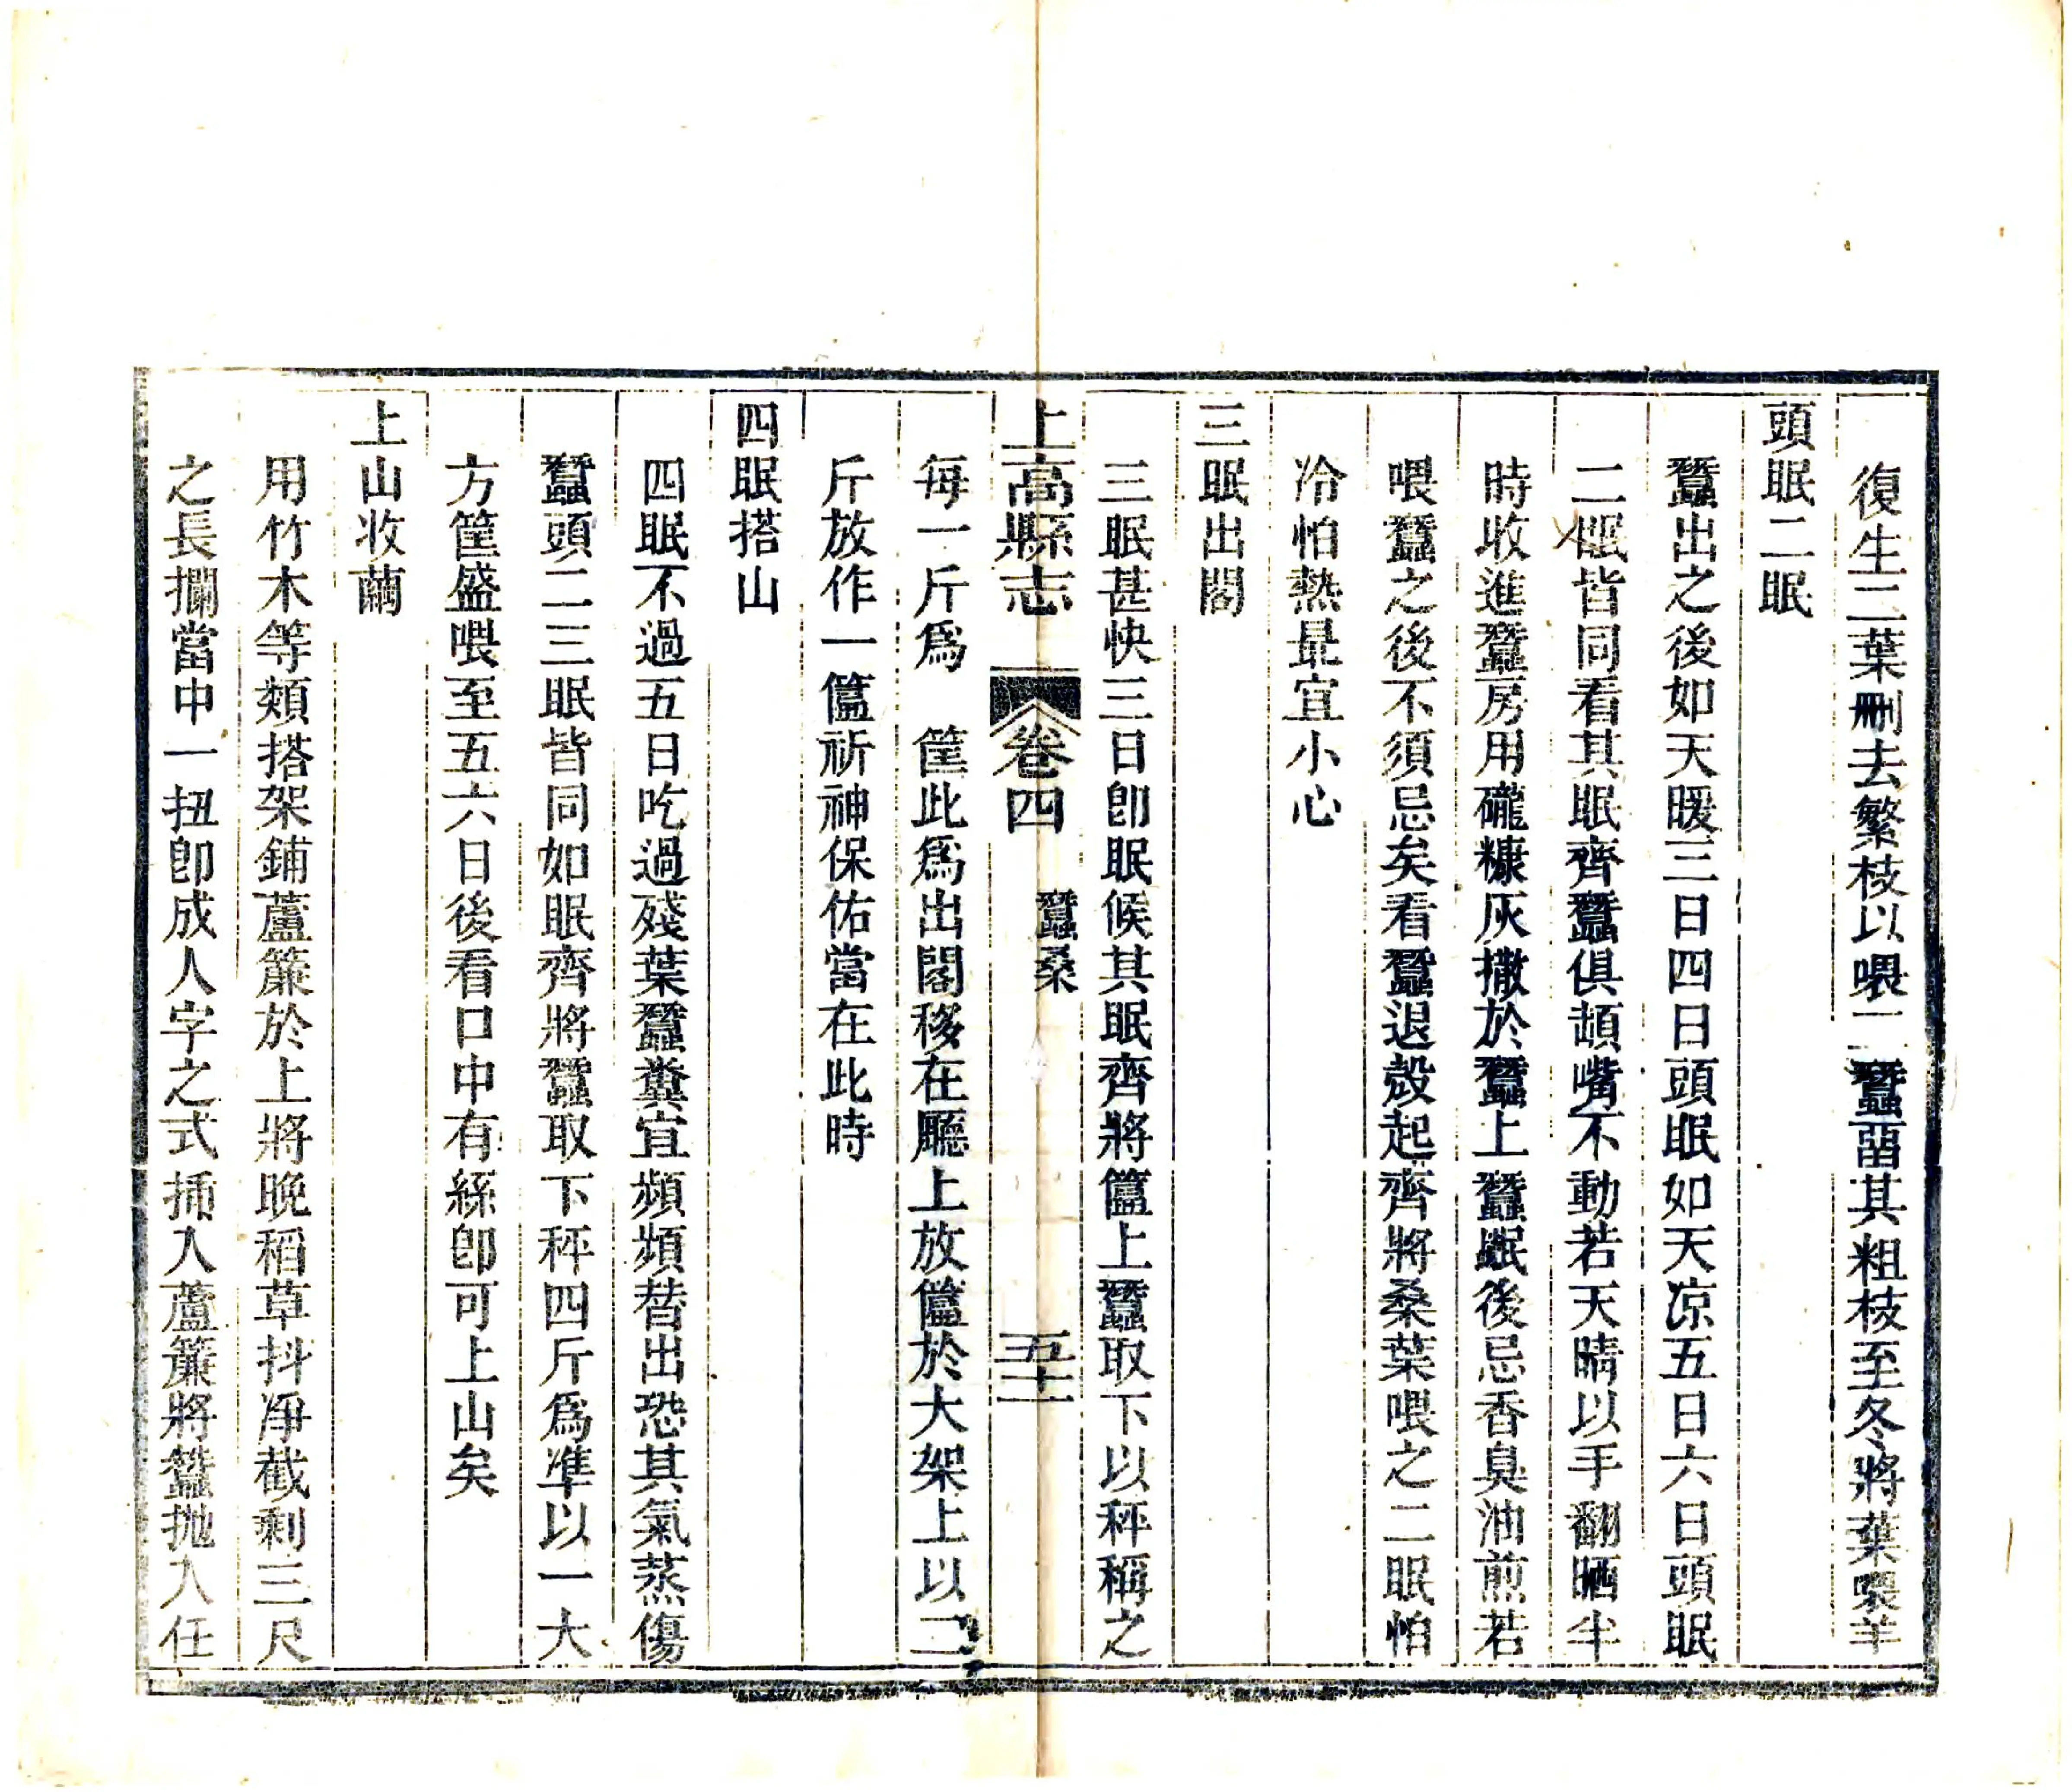 復生二葉刪去繁枝以喂二蠶畱其粗枝至冬將葉喂羊
頭眠二眠
蠶出之後如天暖三日四日頭眠如天凉五日六日頭眠
二眠皆同看其眠齊蠶俱頡嘴不動若天晴以手翻晒半
時收進蠶房用礲糠灰撒於蠶上蠶眠後忌香臭油煎若
喂蠶之後不須忌矣看蠶退殼起齊將桑葉喂之二眠怕
冷怕熱最宜小心
三眠出閣
三眠甚快三日卽眠候其眠齊將簠上蠶取下以秤稱之
上高縣志 卷四 蠶桑 五十一
每一斤爲 筐此爲出閣移在廳上放簠於大架上以二
斤放作一簠祈神保佑當在此時
四眠搭山
四眠不過五日吃過殘葉蠶糞宜頻頻替出恐其氣蒸傷
蠶頭二三眠皆同如眠齊將蠶取下秤四斤爲準以一大
方筐盛喂至五六日後看口中有絲卽可上山矣
上山收繭
用竹木等類搭架鋪蘆簾於上將晚稻草抖淨截剩三尺
之長攔當中一扭卽成人字之式插入蘆簾將蠶抛入任